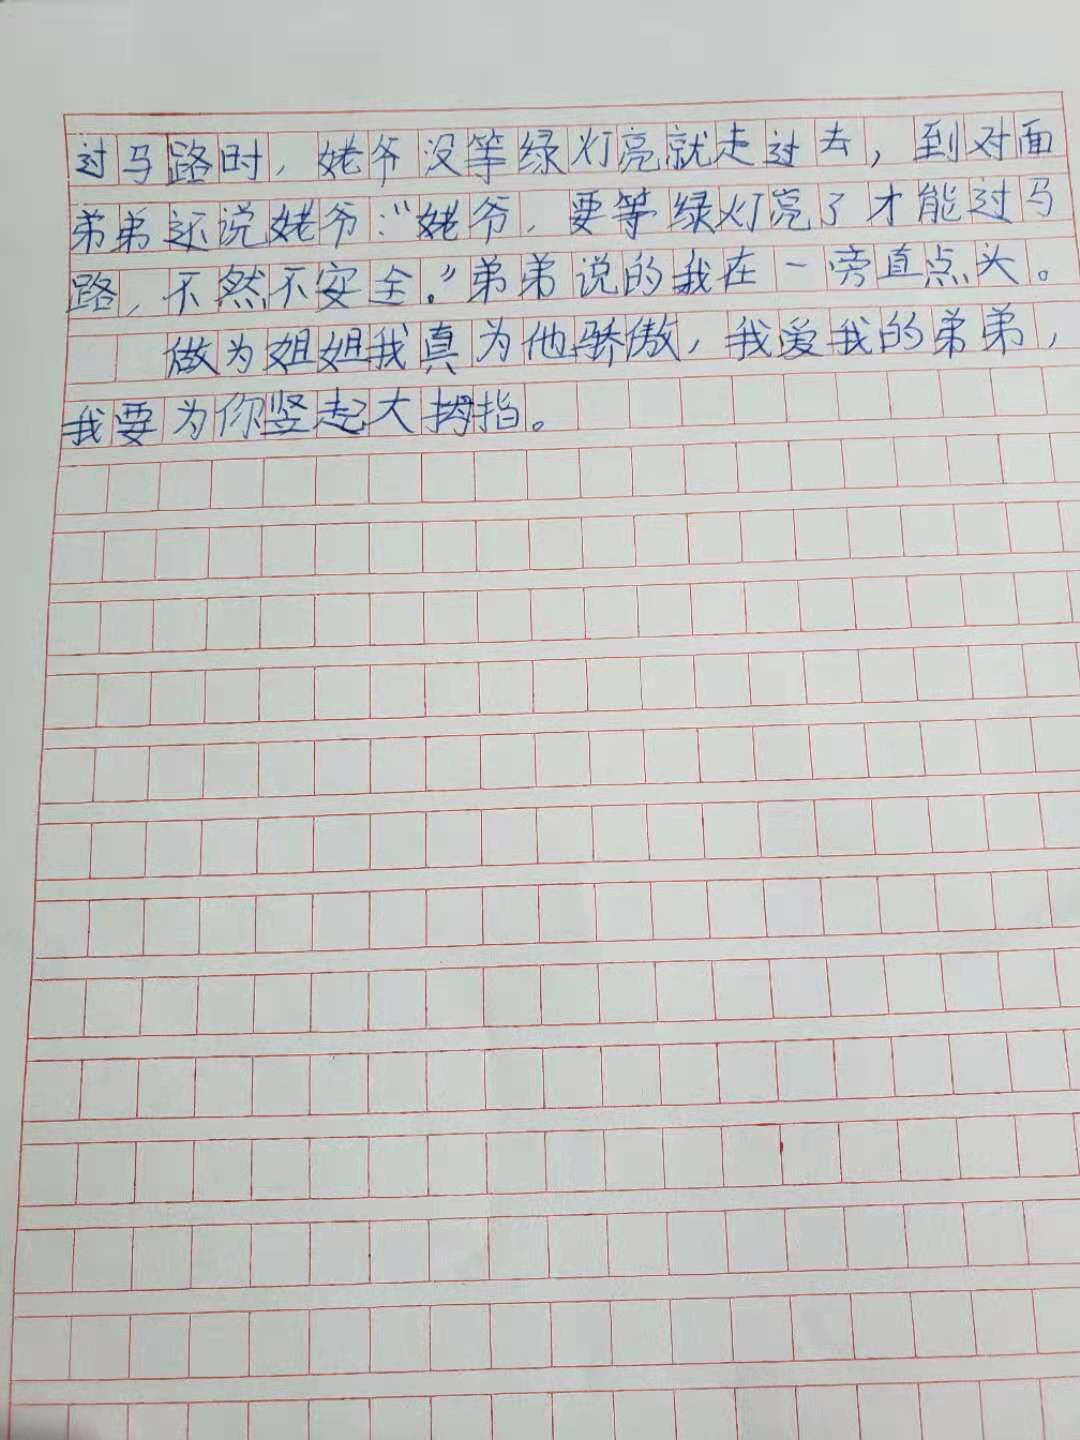 过马路时，姥爷没等绿灯亮就走过去，到对面
弟弟还说姥爷：“姥爷，要等绿灯亮了才能过马
路，不然不安全。”弟弟说的我在一旁直点头。
做为姐姐我真为他骄傲，我爱我的弟弟，
我要为你竖起大拇指。